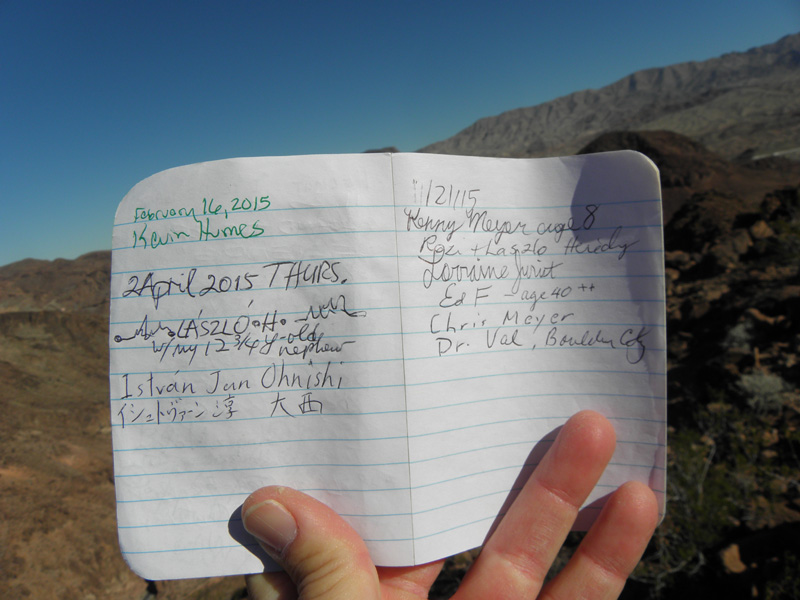 February 16, 2015
Kevin Humes
2 April 2015 THURS.
LÁSZLÓ • H.
w/ my 12 3/4 y-old
nephew
István Jun Ohnishi
イシュトヴァーン 淳 大西
11/21/15
Kenny Meyer age 8
+ Laszlo
Lorraine
Ed F - age 40 ++
Chris Meyer
Dr. Val, Boulder City